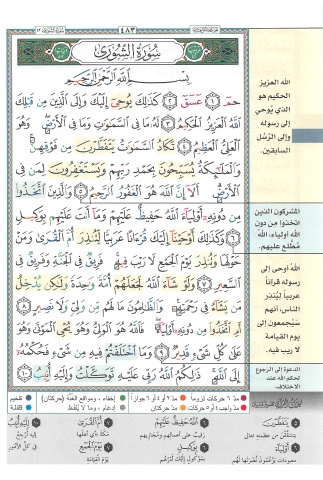 ٤٨٣
سُورَةُ الشُّورَىٰ
بِسْمِ اللَّهِ الرَّحْمَٰنِ الرَّحِيمِ
حمٓ ١ عٓسٓقٓ ٢ كَذَٰلِكَ يُوحِيٓ إِلَيْكَ وَإِلَى الَّذِينَ مِن قَبْلِكَ
اللَّهُ الْعَزِيزُ الْحَكِيمُ ٣ لَهُۥ مَا فِي السَّمَٰوَٰتِ وَمَا فِي الْأَرْضِ وَهُوَ
الْعَلِيُّ الْعَظِيمُ ٤ تَكَادُ السَّمَٰوَٰتُ يَتَفَطَّرْنَ مِن فَوْقِهِنَّ
وَالْمَلَٰٓئِكَةُ يُسَبِّحُونَ بِحَمْدِ رَبِّهِمْ وَيَسْتَغْفِرُونَ لِمَن فِي
الْأَرْضِ أَلَآ إِنَّ اللَّهَ هُوَ الْغَفُورُ الرَّحِيمُ ٥ وَالَّذِينَ اتَّخَذُوا
مِن دُونِهِۦٓ أَوْلِيَآءَ اللَّهُ حَفِيظٌ عَلَيْهِمْ وَمَآ أَنتَ عَلَيْهِم بِوَكِيلٍ
٦ وَكَذَٰلِكَ أَوْحَيْنَآ إِلَيْكَ قُرْءَانًا عَرَبِيًّا لِّتُنذِرَ أُمَّ الْقُرَىٰ وَمَنْ
حَوْلَهَا وَتُنذِرَ يَوْمَ الْجَمْعِ لَا رَيْبَ فِيهِ فَرِيقٌ فِي الْجَنَّةِ وَفَرِيقٌ فِي
السَّعِيرِ ٧ وَلَوْ شَآءَ اللَّهُ لَجَعَلَهُمْ أُمَّةً وَٰحِدَةً وَلَٰكِن يُدْخِلُ
مَن يَشَآءُ فِي رَحْمَتِهِۦ وَالظَّٰلِمُونَ مَا لَهُم مِّن وَلِيٍّ وَلَا نَصِيرٍ ٨
أَمِ اتَّخَذُوا مِن دُونِهِۦٓ أَوْلِيَآءَ فَاللَّهُ هُوَ الْوَلِيُّ وَهُوَ يُحْيِ الْمَوْتَىٰ وَهُوَ
عَلَىٰ كُلِّ شَيْءٍ قَدِيرٌ ٩ وَمَا اخْتَلَفْتُمْ فِيهِ مِن شَيْءٍ فَحُكْمُهُۥٓ
إِلَى اللَّهِ ذَٰلِكُمُ اللَّهُ رَبِّي عَلَيْهِ تَوَكَّلْتُ وَإِلَيْهِ أُنِيبُ ١٠
الله العزيز
الحكيم هو
الذي يُوحي
إلى رسوله
وإلى الرُّسُل
السابقين.
المشركون الذين
اتخذوا مِن دون
الله أولياء، الله
مُطَّلع عليهم.
الله أوحى إلى
رسوله قرآناً
عربياً ليُنذِر
الناس، أنهم
سيُجمعون إلى
يوم القيامة
لا ريب فيه.
الدعوة إلى الرجوع
لحكم الله عند
الاختلاف.